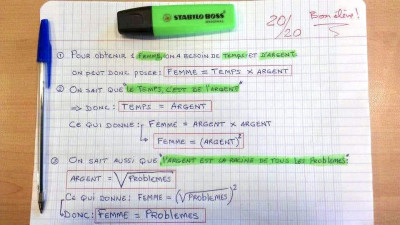 STABILO BOSS
20/20
Bon élève!
① POUR OBTENIR 1 FEMME, ON A BESOIN DE TEMPS ET D'ARGENT
ON PEUT DONC POSER: FEMME = TEMPS x ARGENT
② ON SAIT QUE "LE TEMPS, C'EST DE L'ARGENT"
⇒ DONC: TEMPS = ARGENT
CE QUI DONNE: FEMME = ARGENT x ARGENT
FEMME = (ARGENT)²
③ ON SAIT AUSSI QUE "L'ARGENT EST LA RACINE DE TOUS LES PROBLEMES"
ARGENT = √PROBLEMES
CE QUI DONNE: FEMME = (√PROBLEMES)²
DONC: FEMME = PROBLEMES